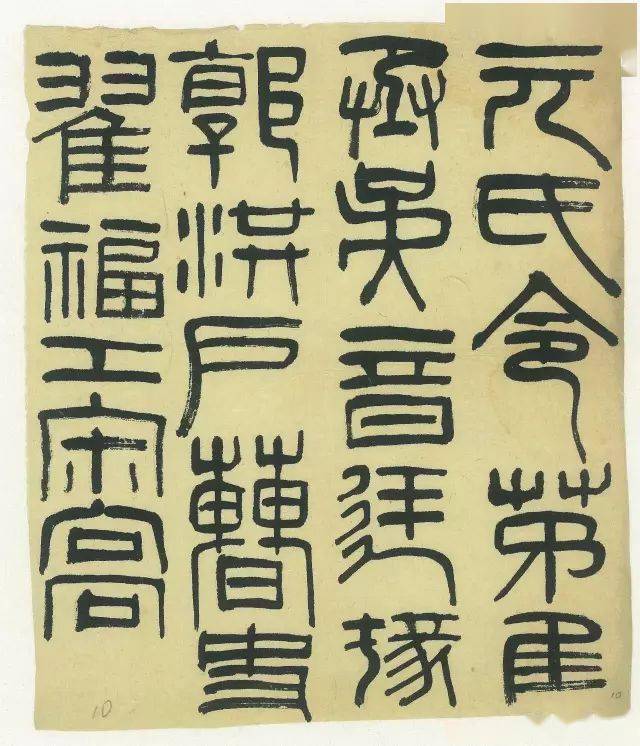 元氏令茅匡
丞吳音廷掾
郭洪戶曹史
翟福工宋高
10
10